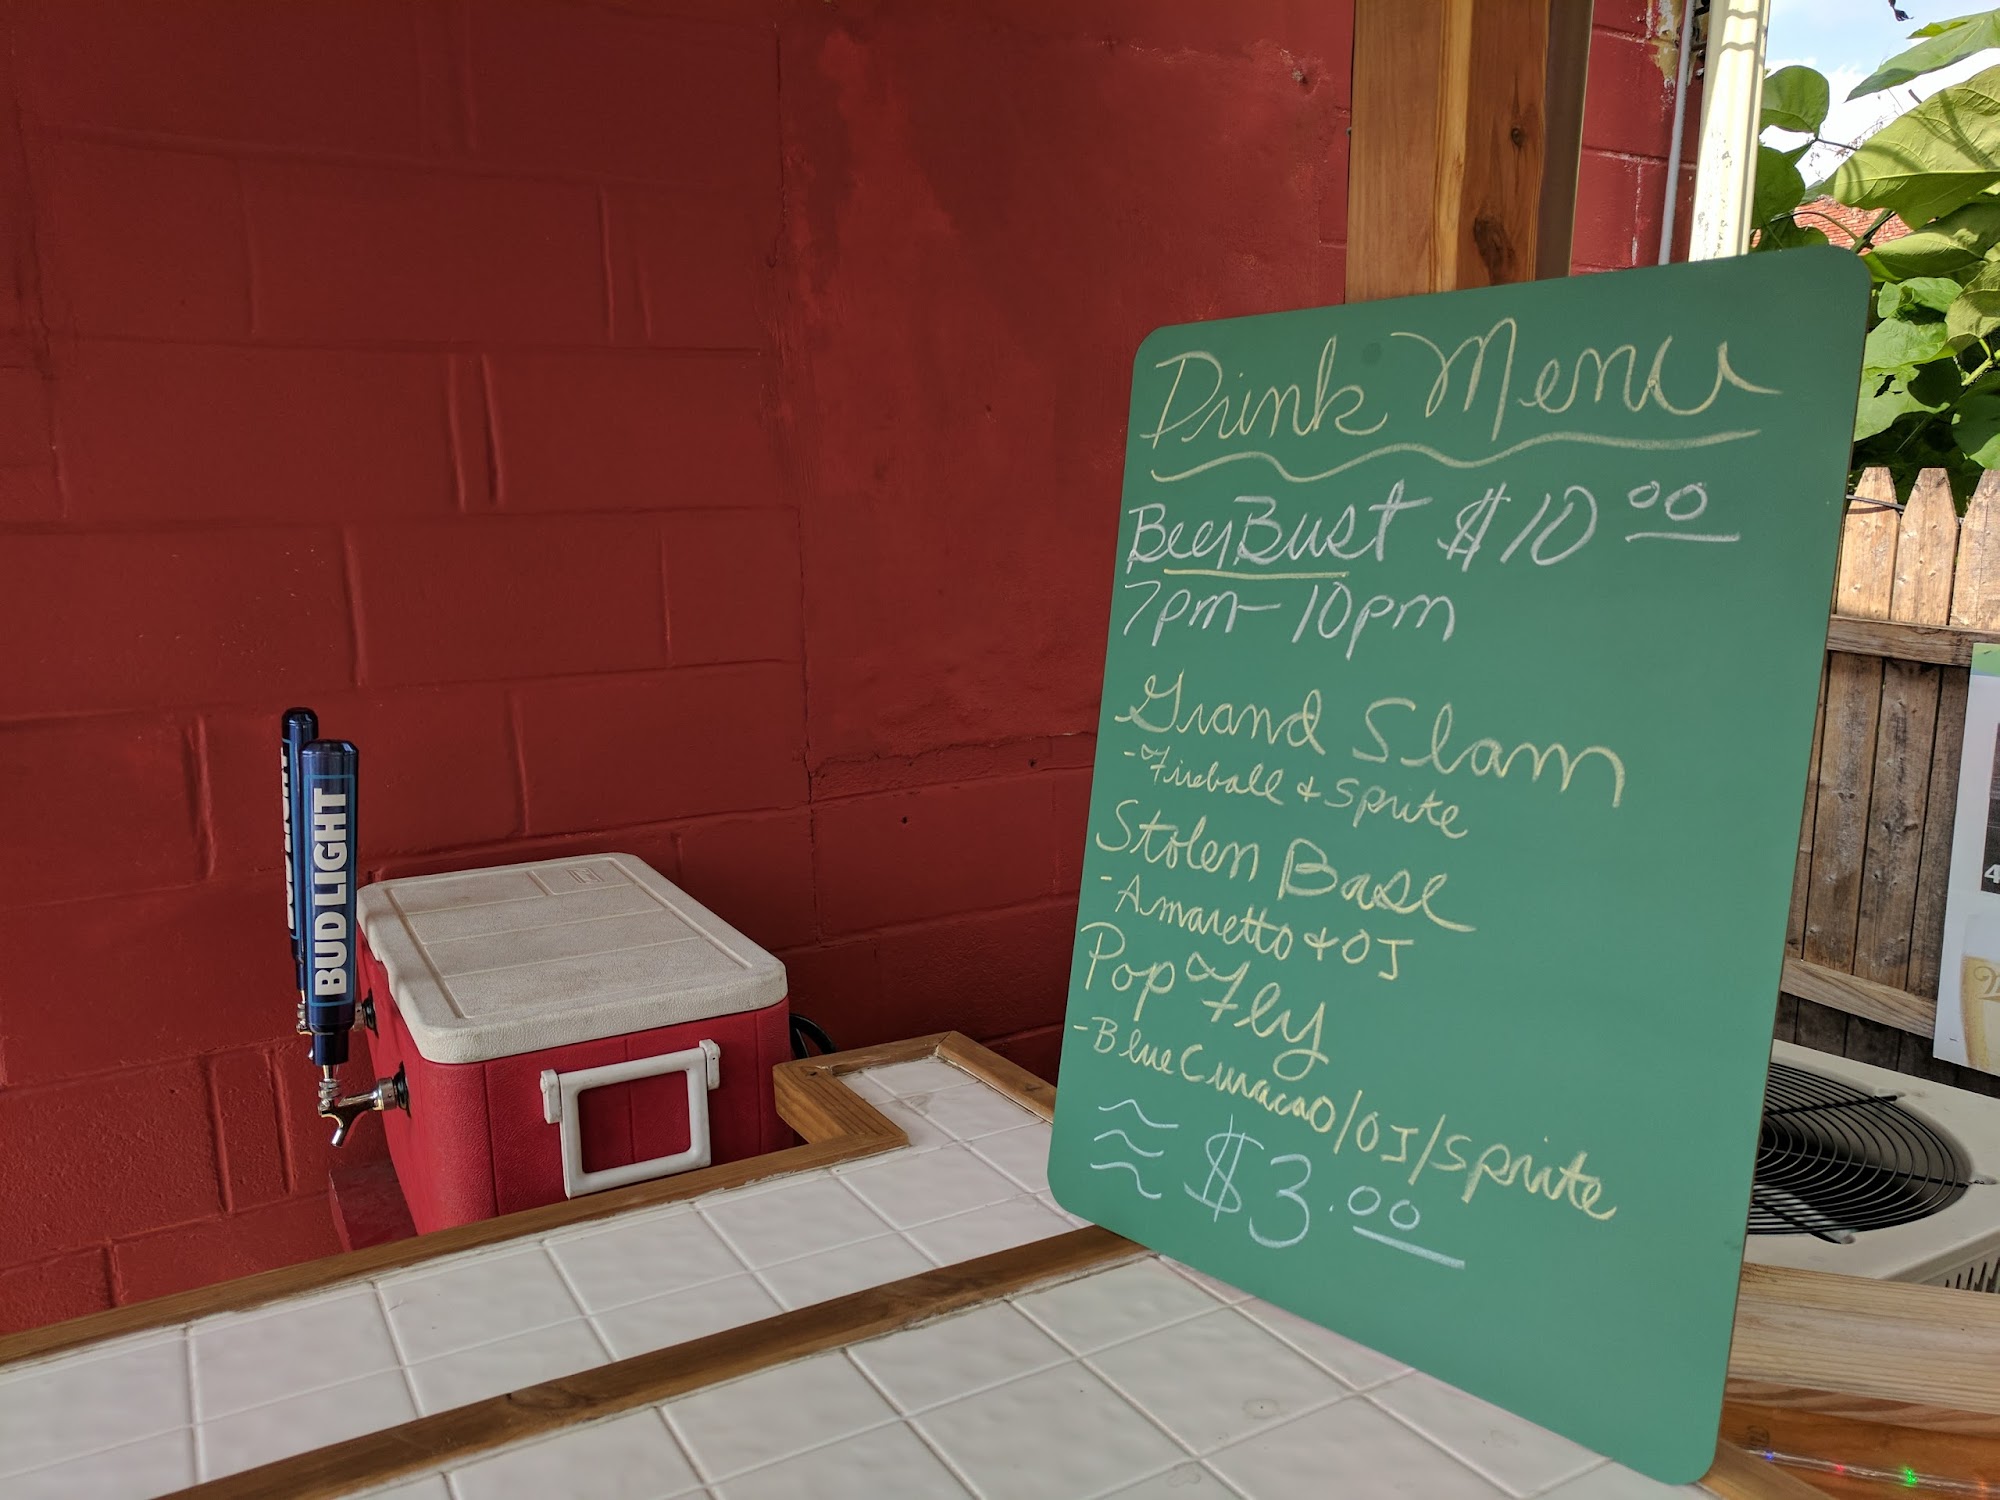 Drink Menu
Beer Bust $10.00
7pm-10pm
Grand Slam
-Fireball & Sprite
Stolen Base
-Amaretto & OJ
Pop Fly
-Blue Curacao/OJ/Sprite
$3.00
BUD LIGHT